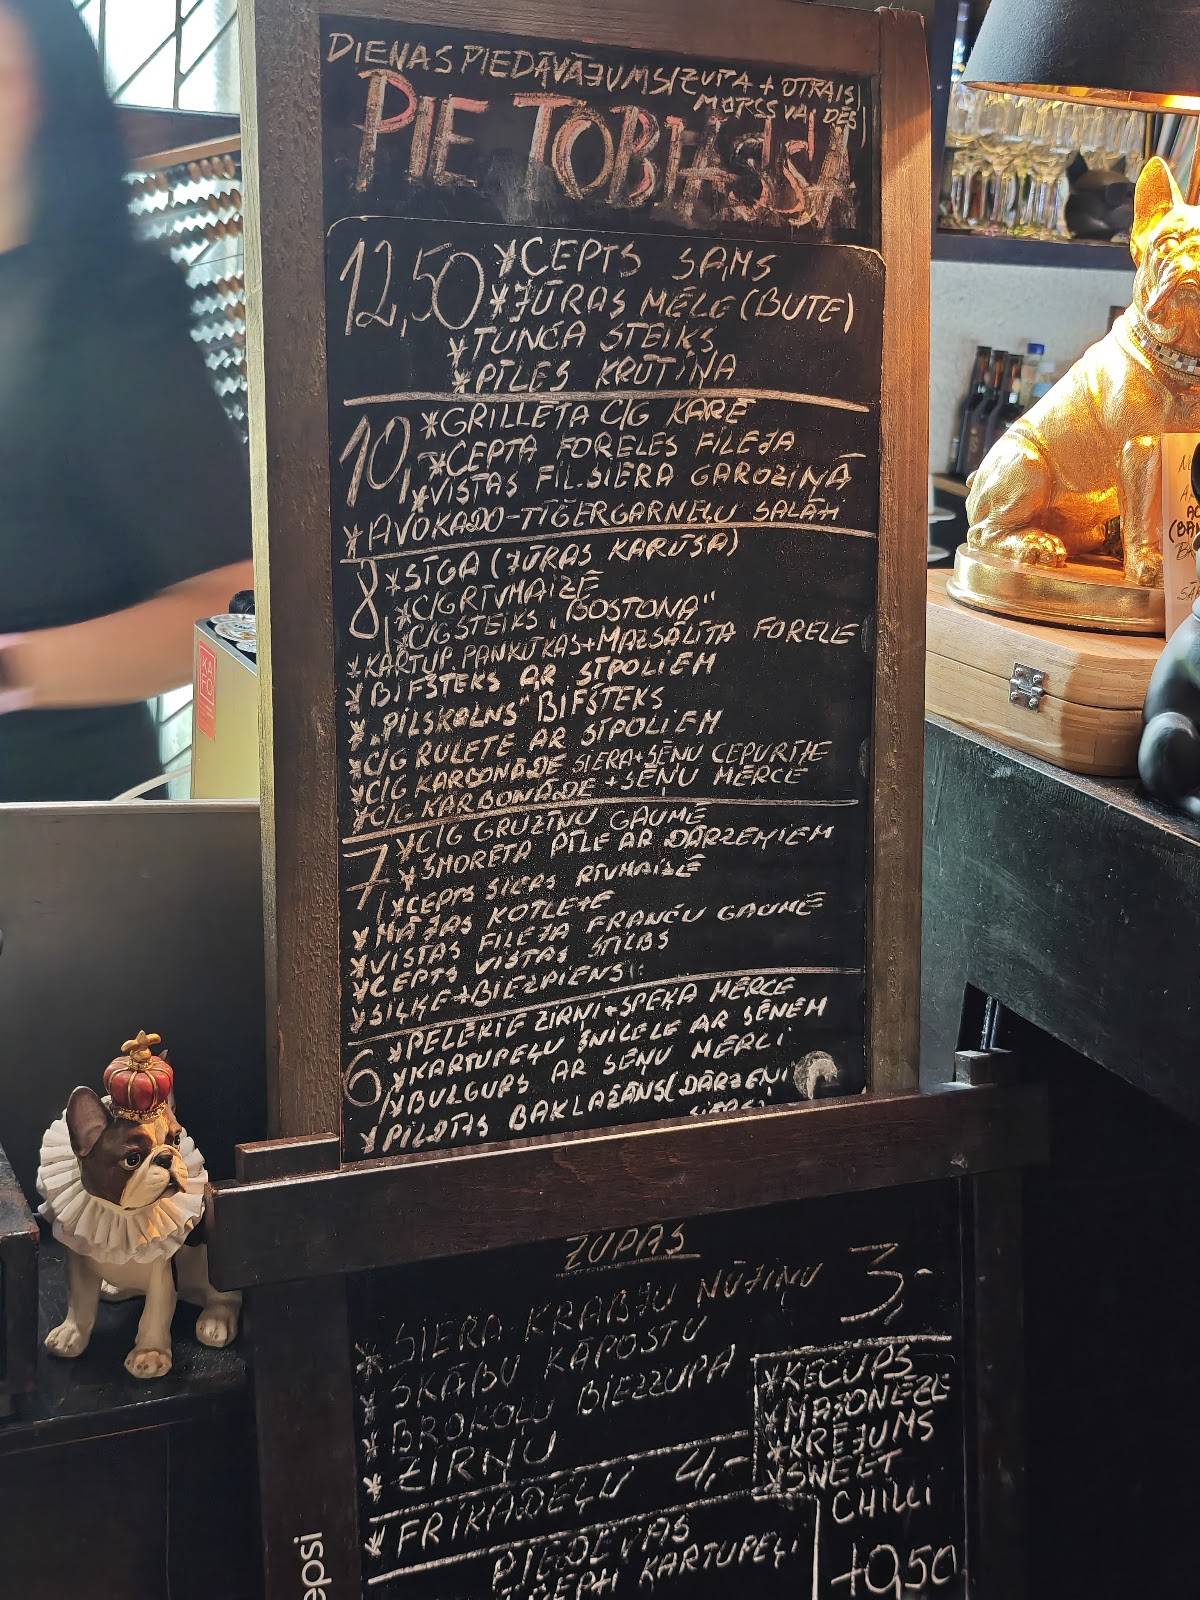 DIENAS PIEDĀVĀJUMS (ZUPA + OTRAIS)
MORSS VAI DES
PIE TOBIASSA
12,50 *CEPTS SAMS
*JŪRAS MĒLE (BUTE)
*TUNČA STEIKS
*PĪLES KRŪTIŅA
10,- *GRILLĒTA C/G KARĒ
*CEPTA FORELES FILEJA
*VISTAS FIL.SIERA GAROZIŅĀ
*AVOKADO-TĪĢERGARNEĻU SALĀTI
8,- *SĪGA (JŪRAS KARŪSA)
*C/G RTVMAIZĒ
*C/G STEIKS "BOSTONA"
*KARTUP. PANKŪKAS+MAZSĀLĪTA FORELE
*BIFŠTEKS AR SĪPOLIEM
*"PILSKALNS" BIFŠTEKS
*C/G RULETE AR SĪPOLIEM
*C/G KARBONĀDE SIERA+SĒŅU CEPURĪTE
*C/G KARBONĀDE +SĒŅU MĒRCE
7,- *C/G GRUZĪNU GAUMĒ
*ŠMORĒTA PĪLE AR DĀRZEŅIEM
*CEPTS SIERS RĪVMAIZĒ
*MĀJAS KOTLETE
*VISTAS FILEJA FRANČU GAUMĒ
*CEPTS VISTAS STILBS
*SIĻĶE+BIEZPIENS
6,- *PELĒKIE ZIRŅI+SPEĶA MĒRCE
*KARTUPEĻU ŠNICELE AR SĒNĒM
*BULGURS AR SĒŅU MĒRCI
*PILDĪTS BAKLAŽĀNS (DĀRZEŅI
SIERS)
ZUPAS
*SIERA KRABJU NŪJIŅU 3,-
*SKĀBU KĀPOSTU
*BROKOĻU BIEZZUPA
*ZIRŅU
*FRIKADEĻU 4,-
*KEČUPS
*MAJONĒZE
*KRĒJUMS
*SWEET
CHILLI
+0,50
PIEDEVAS
CEPTI KARTUPEĻI
epsi